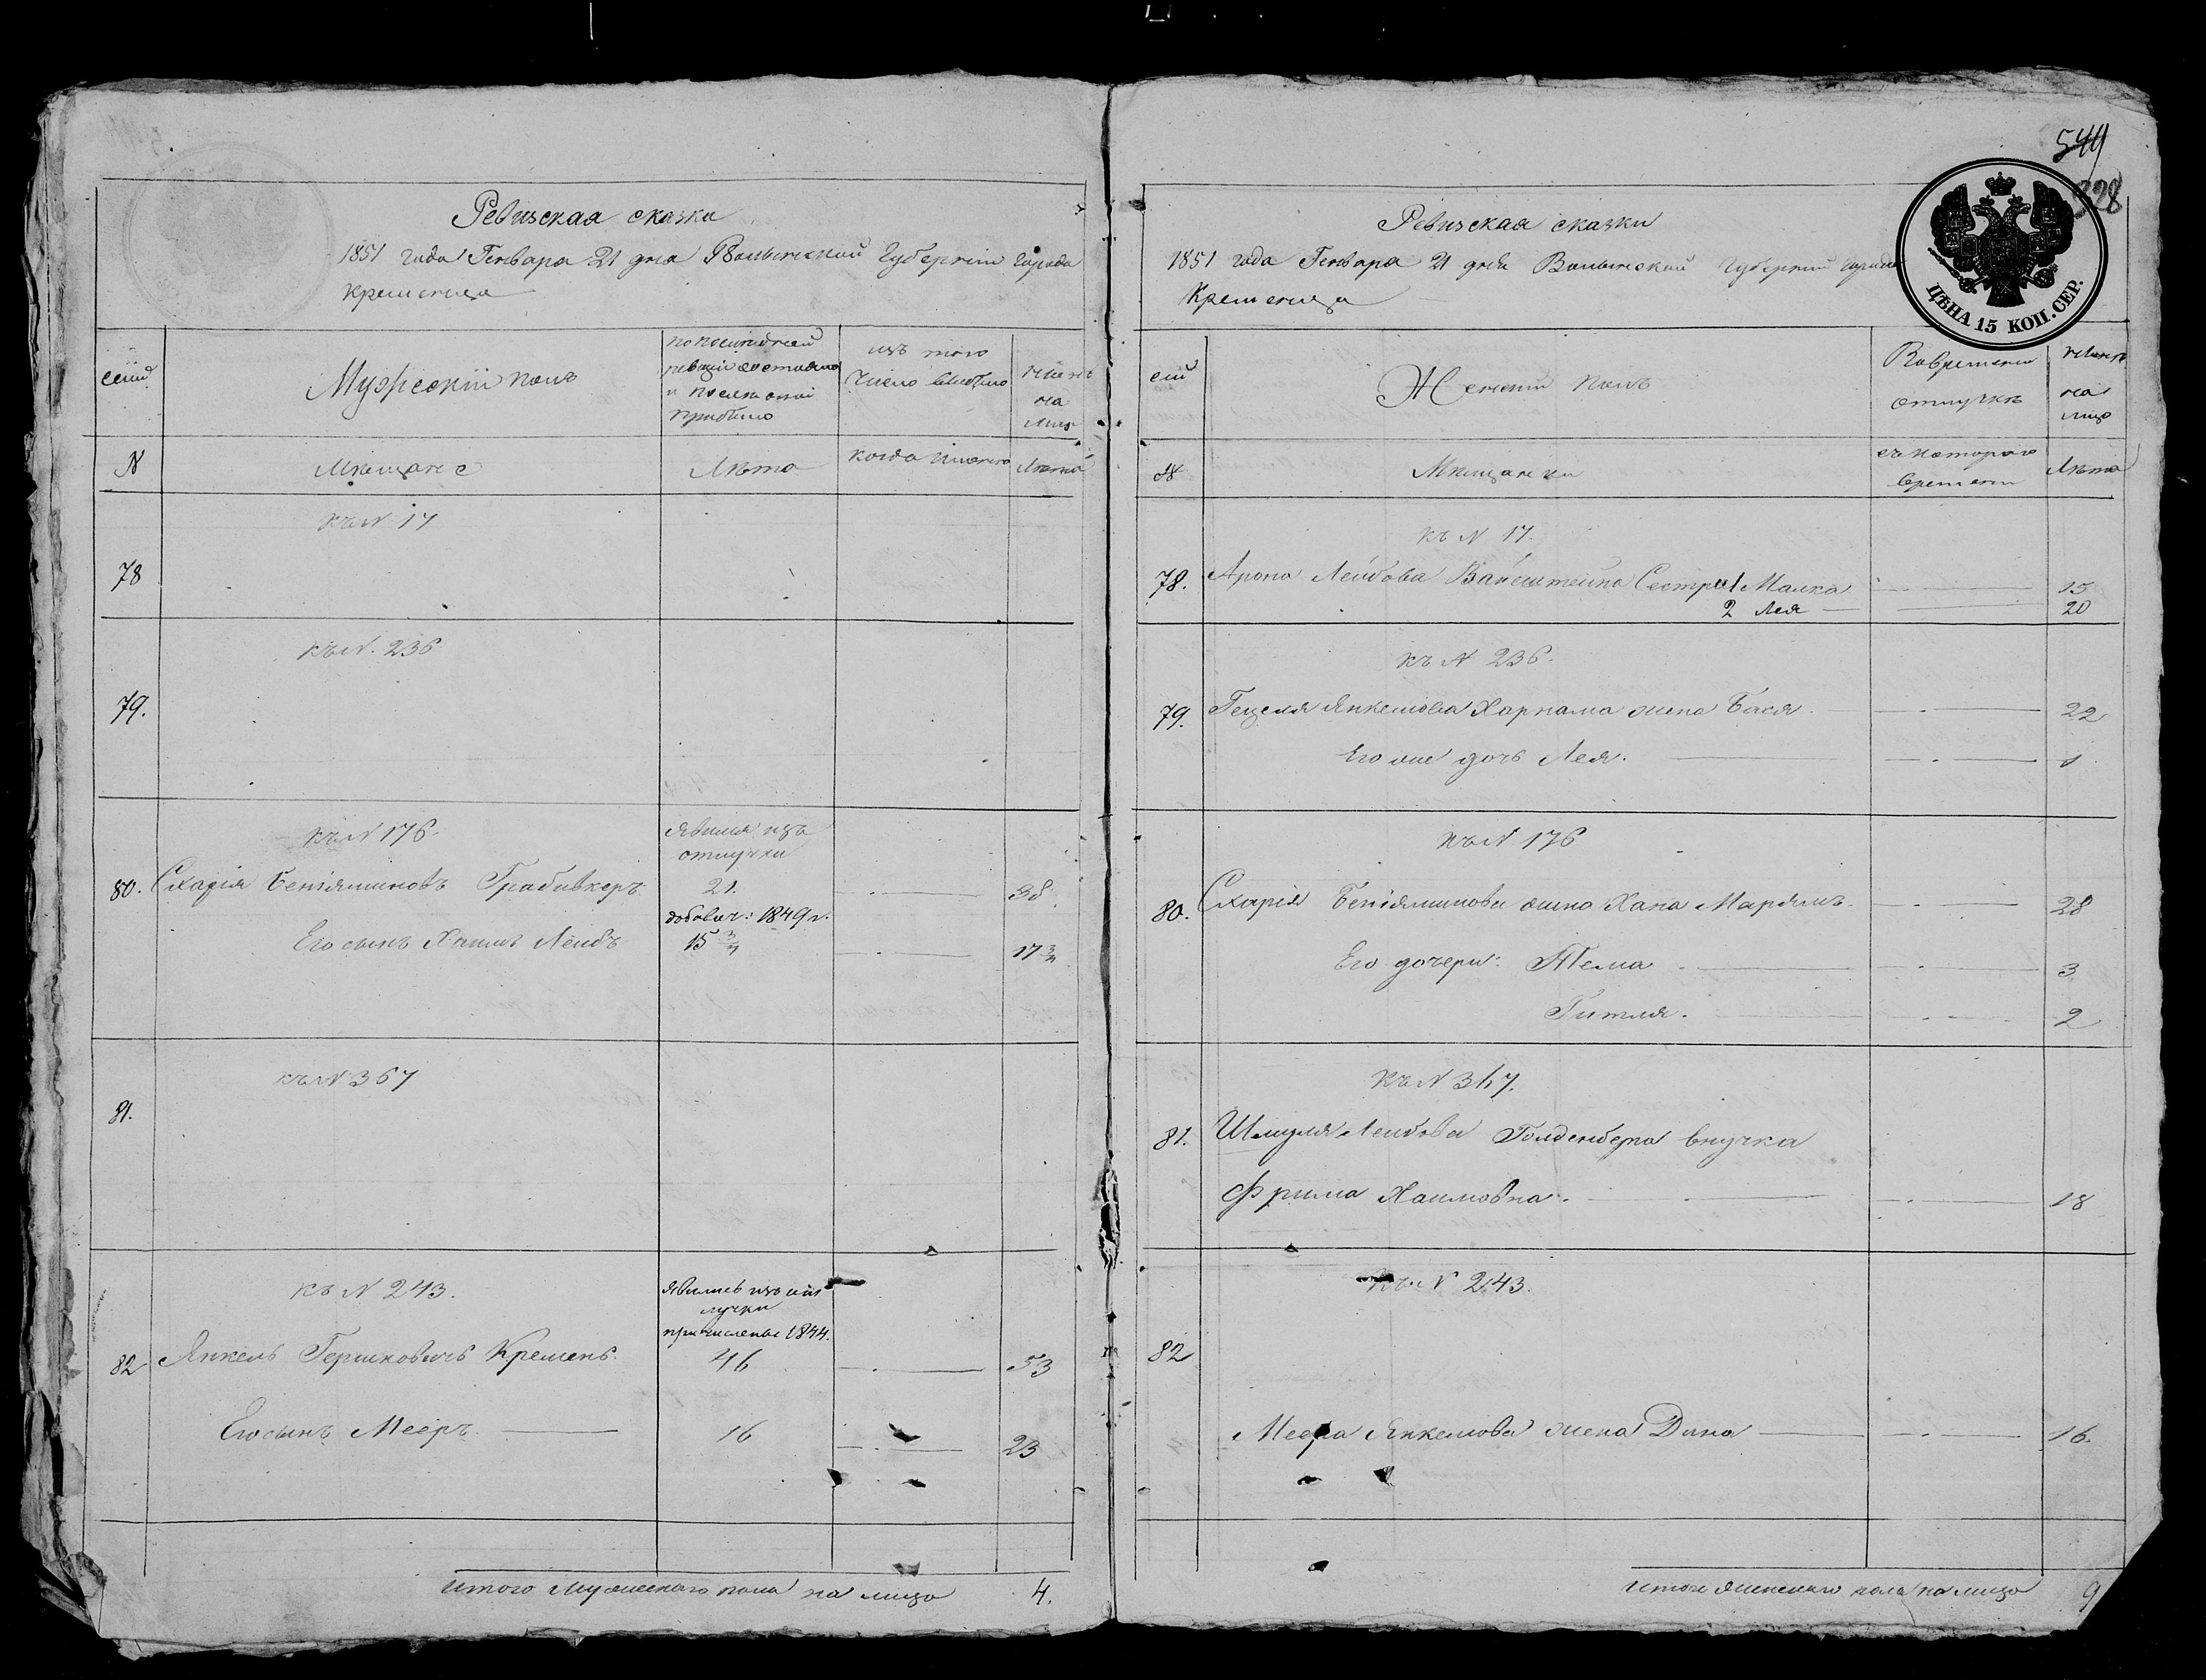 Ревизская сказка
1851 года Генваря 21 дня Волынской Губернiи города
Кременца
семей
Мужескiй полъ
по последней
ревизiи состояло
и после оной
прибыло
изъ того
числа выбыло
ныне
на
лицо
N
Мещане
Лета
когда именно
Лета
къ N 17
78
къ N. 236
79.
къ N 176.
явился изъ
отлучки
80. Схарiя Бенiяминовъ Грабивкеръ.
21.
38
добавоч: 1849 г.
Его сынъ Хаимъ Лейбъ
15 3/4
17 3/4
къ N 367
81.
къ N 243.
явились изъ от
лучки
причислены 1844.
82 Янкель Гершковичъ Кременъ.
46
53
Его сынъ Мееръ
16
23
Итого Мужескаго пола на лицо 4.
544
328
ЦѢНА 15 КОП. СЕР.
Ревизская сказки
1851 года Генваря 21 дня Волынской Губернiи города
Кременца
сем
Женскiй полъ
Вовременной
отлучке
ныне
на
лицо
N
Мещанки
съ котораго
времени
Лета
къ N 17.
78. Арона Лейбова Вайнштейна Сестры 1 Малка 15
2 Лея 20
къ N 236.
79. Гецеля Янкелиова Харпама жена Бася 22
Его же дочь Лея. 1
къ N 176
80. Схарiя Бенiяминова жена Хана Марьямъ 28
Его дочери: Тема 3
Гитля. 2
къ N 367.
81. Шмуля Лейбова Голденберга внучка
Фрима Хаимовна. 18
къ N 243.
82
Меера Янкелиова жена Дина 16.
Итого женскаго пола на лицо 9